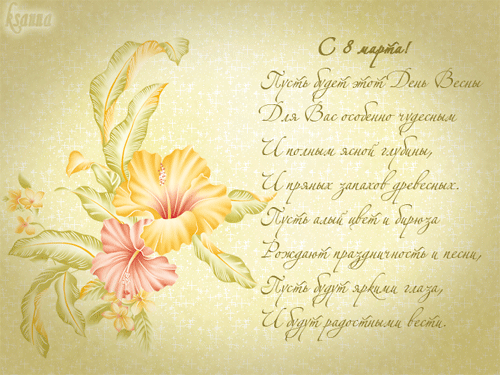 ksanna
С 8 марта!
Пусть будет этот День Весны
Для Вас особенно чудесным
И полным ясной глубины,
И пряных запахов древесных.
Пусть алый цвет и бирюза
Рождают праздничность и песни,
Пусть будут яркими глаза,
И будут радостными вести.